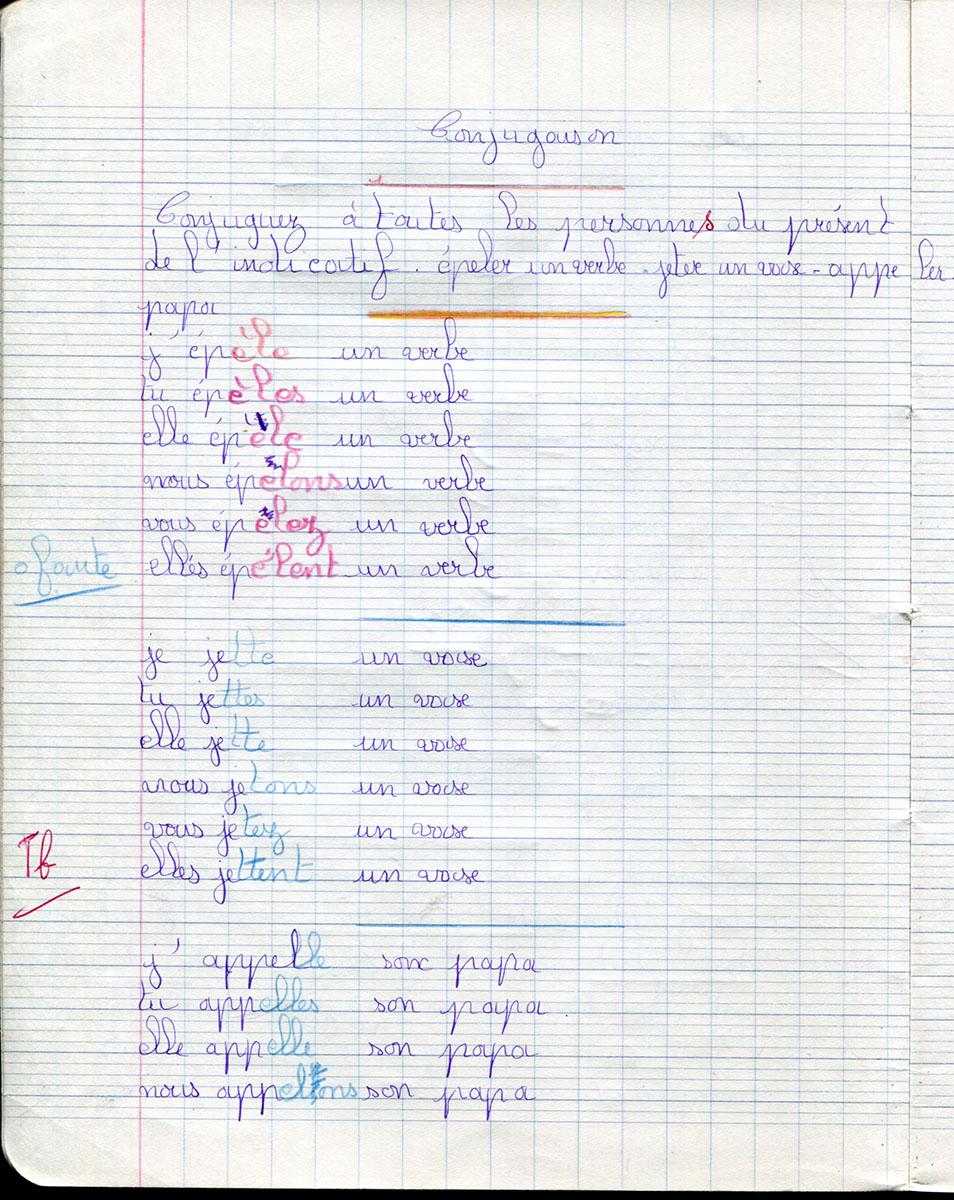 Conjugaison
Conjuguez à toutes les personnes du présent
de l'indicatif. épeler un verbe. jeter un vase - appeler
papa
j'épèle un verbe
tu épèles un verbe
elle épèle un verbe
nous épelons un verbe
vous épelez un verbe
0 faute
elles épélent un verbe
je jette un vase
tu jettes un vase
elle jette un vase
nous jetons un vase
vous jetez un vase
Tb
elles jettent un vase
j'appelle son papa
tu appelles son papa
elle appelle son papa
nous appelons son papa